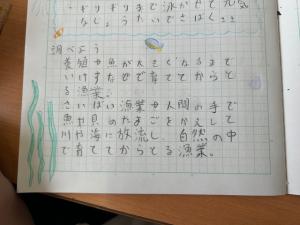 ギリギリまで泳がせて元気
なじょうたいでさばく
調べよう
養殖は魚が大きくなるまで
いけすなどで育ててからと
る漁業。
さいばい漁業は人間の手で
魚や貝のたまごをかえして
川や海に放流し、自然の中
で育ててからとる漁業。